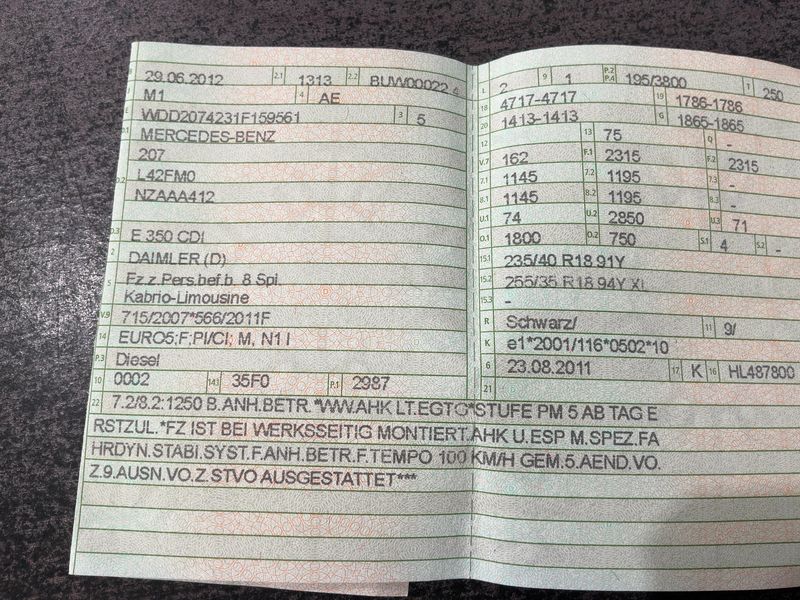 B 29.06.2012 2.1 1313 2.2 BUW00022 4
J M1 4 AE
E WDD2074231F159561 3 5
D.1 MERCEDES-BENZ
207
D.2 L42FM0
NZAAA412
D.3 E 350 CDI
2 DAIMLER (D)
5 Fz.z.Pers.bef.b. 8 Spl.
Kabrio-Limousine
V.9 715/2007*566/2011F
14 EURO5;F;PI/CI; M, N1 I
P.3 Diesel
10 0002 14.1 35F0 P.1 2987
L 2 9 1 P.2 P.4 195/3800 T 250
18 4717-4717 19 1786-1786
20 1413-1413 G 1865-1865
12 - 13 75 Q -
V.7 162 F.1 2315 F.2 2315
7.1 1145 7.2 1195 7.3 -
8.1 1145 8.2 1195 8.3 -
U.1 74 U.2 2850 U.3 71
O.1 1800 O.2 750 S.1 4 S.2 -
15.1 235/40 R18 91Y
15.2 255/35 R18 94Y XL
15.3 -
R Schwarz/ 11 9/
K e1*2001/116*0502*10
6 23.08.2011 17 K 16 HL487800
21
22 7.2/8.2:1250 B.ANH.BETR.*WW.AHK LT.EGTG*STUFE PM 5 AB TAG E
RSTZUL.*FZ IST BEI WERKSSEITIG MONTIERT.AHK U.ESP M.SPEZ.FA
HRDYN.STABI.SYST.F.ANH.BETR.F.TEMPO 100 KM/H GEM.5.AEND.VO.
Z.9.AUSN.VO.Z.STVO AUSGESTATTET***